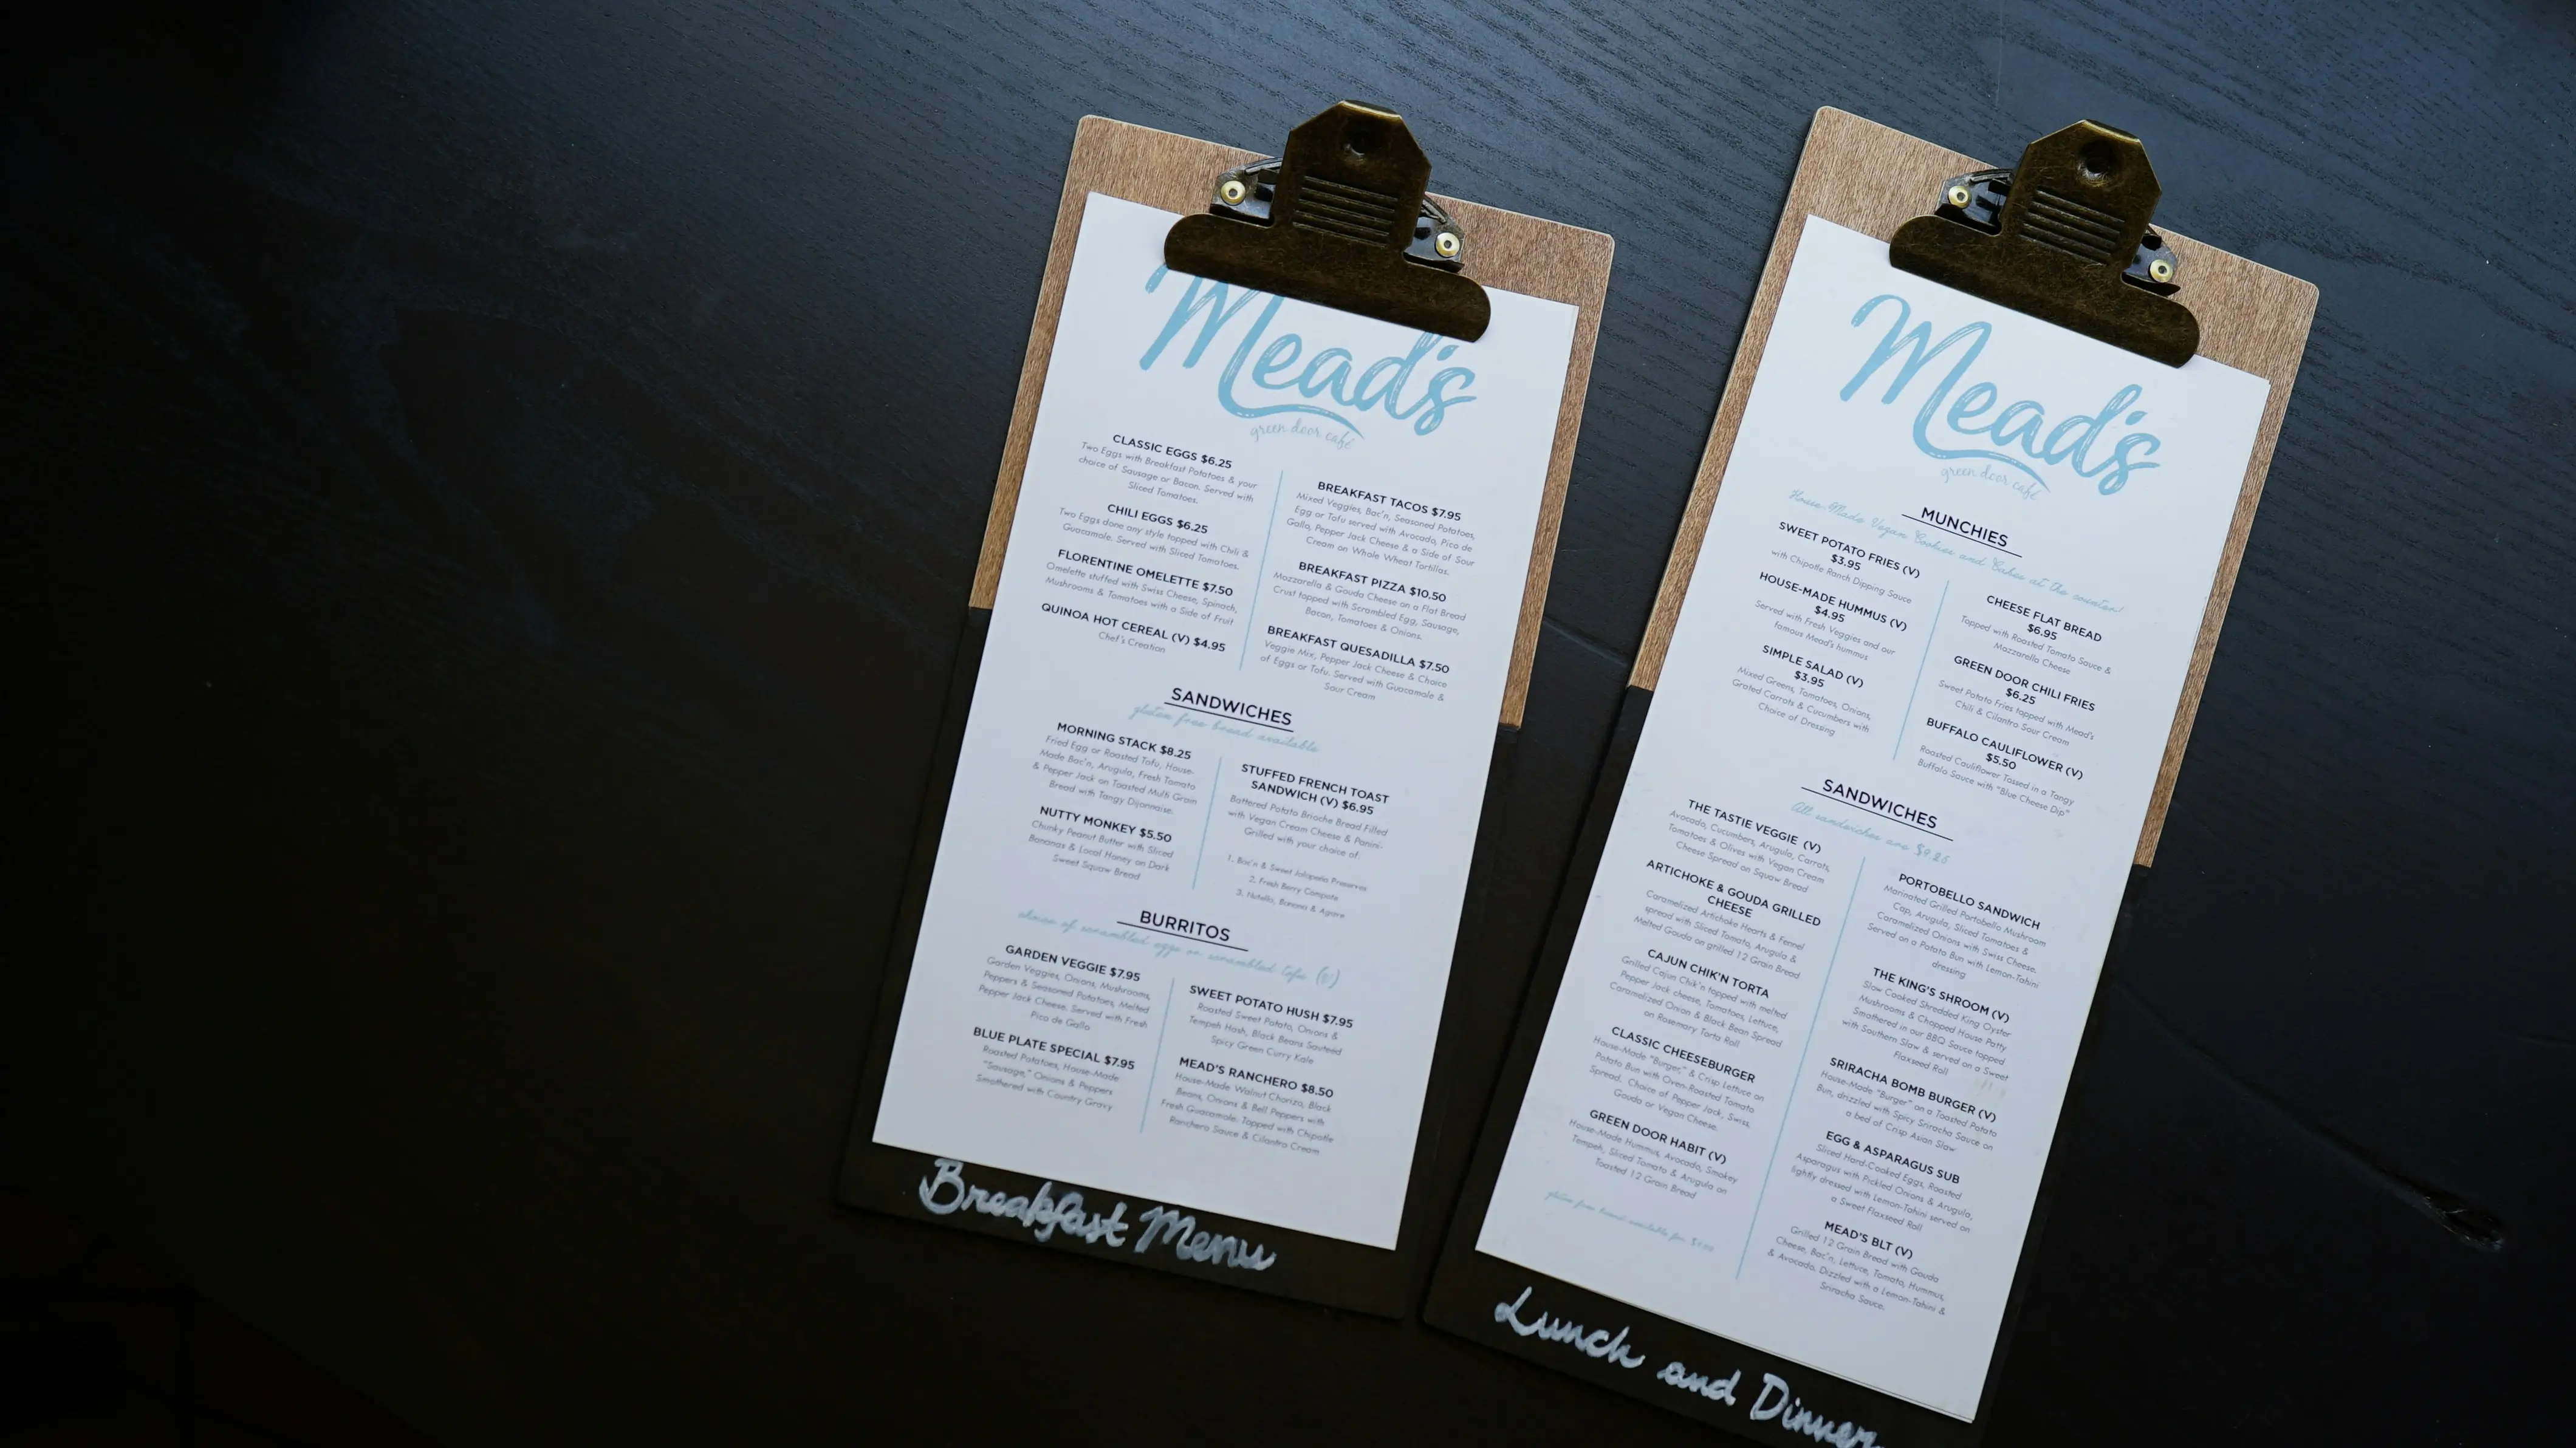 Mead's
green door café
CLASSIC EGGS $6.25
Two Eggs with Breakfast Potatoes & your
choice of Sausage or Bacon. Served with
Sliced Tomatoes.
CHILI EGGS $6.25
Two Eggs done any style topped with Chili &
Guacamole. Served with Sliced Tomatoes.
FLORENTINE OMELETTE $7.50
Omelette stuffed with Swiss Cheese, Spinach,
Mushrooms & Tomatoes with a Side of Fruit
QUINOA HOT CEREAL (V) $4.95
Chef's Creation
BREAKFAST TACOS $7.95
Mixed Veggies, Bac'n, Seasoned Potatoes,
Egg or Tofu served with Avocado, Pico de
Gallo, Pepper Jack Cheese & a Side of Sour
Cream on Whole Wheat Tortillas.
BREAKFAST PIZZA $10.50
Mozzarella & Gouda Cheese on a Flat Bread
Crust topped with Scrambled Egg, Sausage,
Bacon, Tomatoes & Onions.
BREAKFAST QUESADILLA $7.50
Veggie Mix, Pepper Jack Cheese & Choice
of Eggs or Tofu. Served with Guacamole &
Sour Cream
SANDWICHES
gluten free bread available
MORNING STACK $8.25
Fried Egg or Roasted Tofu, House-
Made Bac'n, Arugula, Fresh Tomato
& Pepper Jack on Toasted Multi Grain
Bread with Tangy Dijonnaise.
NUTTY MONKEY $5.50
Chunky Peanut Butter with Sliced
Bananas & Local Honey on Dark
Sweet Squaw Bread
STUFFED FRENCH TOAST
SANDWICH (V) $6.95
Battered Potato Brioche Bread Filled
with Vegan Cream Cheese & Panini-
Grilled with your choice of:
1. Bac'n & Sweet Jalapeño Preserves
2. Fresh Berry Compote
3. Nutella, Banana & Agave
BURRITOS
choice of scrambled eggs or scrambled tofu (v)
GARDEN VEGGIE $7.95
Garden Veggies, Onions, Mushrooms,
Peppers & Seasoned Potatoes, Melted
Pepper Jack Cheese. Served with Fresh
Pico de Gallo
BLUE PLATE SPECIAL $7.95
Roasted Potatoes, House-Made
"Sausage," Onions & Peppers
Smothered with Country Gravy
SWEET POTATO HUSH $7.95
Roasted Sweet Potato, Onions &
Tempeh Hash, Black Beans Sautéed
Spicy Green Curry Kale
MEAD'S RANCHERO $8.50
House-Made Walnut Chorizo, Black
Beans, Onions & Bell Peppers with
Fresh Guacamole. Topped with Chipotle
Ranchero Sauce & Cilantro Cream
Breakfast Menu
Mead's
green door café
MUNCHIES
House-Made Vegan Cookies and Cakes at the counter
SWEET POTATO FRIES (V)
$3.95
with Chipotle Ranch Dipping Sauce
HOUSE-MADE HUMMUS (V)
$4.95
Served with Fresh Veggies and our
famous Mead's hummus
SIMPLE SALAD (V)
$3.95
Mixed Greens, Tomatoes, Onions,
Grated Carrots & Cucumbers with
Choice of Dressing
CHEESE FLAT BREAD
$6.95
Topped with Roasted Tomato Sauce &
Mozzarella Cheese
GREEN DOOR CHILI FRIES
$6.25
Sweet Potato Fries topped with Mead's
Chili & Cilantro Sour Cream
BUFFALO CAULIFLOWER (V)
$5.50
Roasted Cauliflower Tossed in a Tangy
Buffalo Sauce with "Blue Cheese Dip"
SANDWICHES
All sandwiches are $9.25
THE TASTIE VEGGIE (V)
Avocado, Cucumbers, Arugula, Carrots,
Tomatoes & Olives with Vegan Cream
Cheese Spread on Squaw Bread
ARTICHOKE & GOUDA GRILLED
CHEESE
Caramelized Artichoke Hearts & Fennel
spread with Sliced Tomato, Arugula &
Melted Gouda on grilled 12 Grain Bread
CAJUN CHIK'N TORTA
Grilled Cajun Chik'n topped with melted
Pepper Jack cheese, Tomatoes, Lettuce,
Caramelized Onion & Black Bean Spread
on Rosemary Torta Roll
CLASSIC CHEESEBURGER
House-Made "Burger," & Crisp Lettuce on
Potato Bun with Oven-Roasted Tomato
Spread. Choice of Pepper Jack, Swiss,
Gouda or Vegan Cheese.
GREEN DOOR HABIT (V)
House-Made Hummus, Avocado, Smokey
Tempeh, Sliced Tomato & Arugula on
Toasted 12 Grain Bread
gluten free bread available for
PORTOBELLO SANDWICH
Marinated Grilled Portobello Mushroom
Cap, Arugula, Sliced Tomatoes &
Caramelized Onions with Swiss Cheese.
Served on a Potato Bun with Lemon-Tahini
dressing
THE KING'S SHROOM (V)
Slow Cooked Shredded King Oyster
Mushrooms & Chopped House Patty
Smothered in our BBQ Sauce topped
with Southern Slaw & served on a Sweet
Flaxseed Roll
SRIRACHA BOMB BURGER (V)
House-Made "Burger" on a Toasted Potato
Bun, drizzled with Spicy Sriracha Sauce on
a bed of Crisp Asian Slaw
EGG & ASPARAGUS SUB
Sliced Hard-Cooked Eggs, Roasted
Asparagus with Pickled Onions & Arugula,
lightly dressed with Lemon-Tahini served on
a Sweet Flaxseed Roll
MEAD'S BLT (V)
Grilled 12 Grain Bread with Gouda
Cheese, Bac'n, Lettuce, Tomato, Hummus,
& Avocado. Dizzled with a Lemon-Tahini &
Sriracha Sauce.
Lunch and Dinner